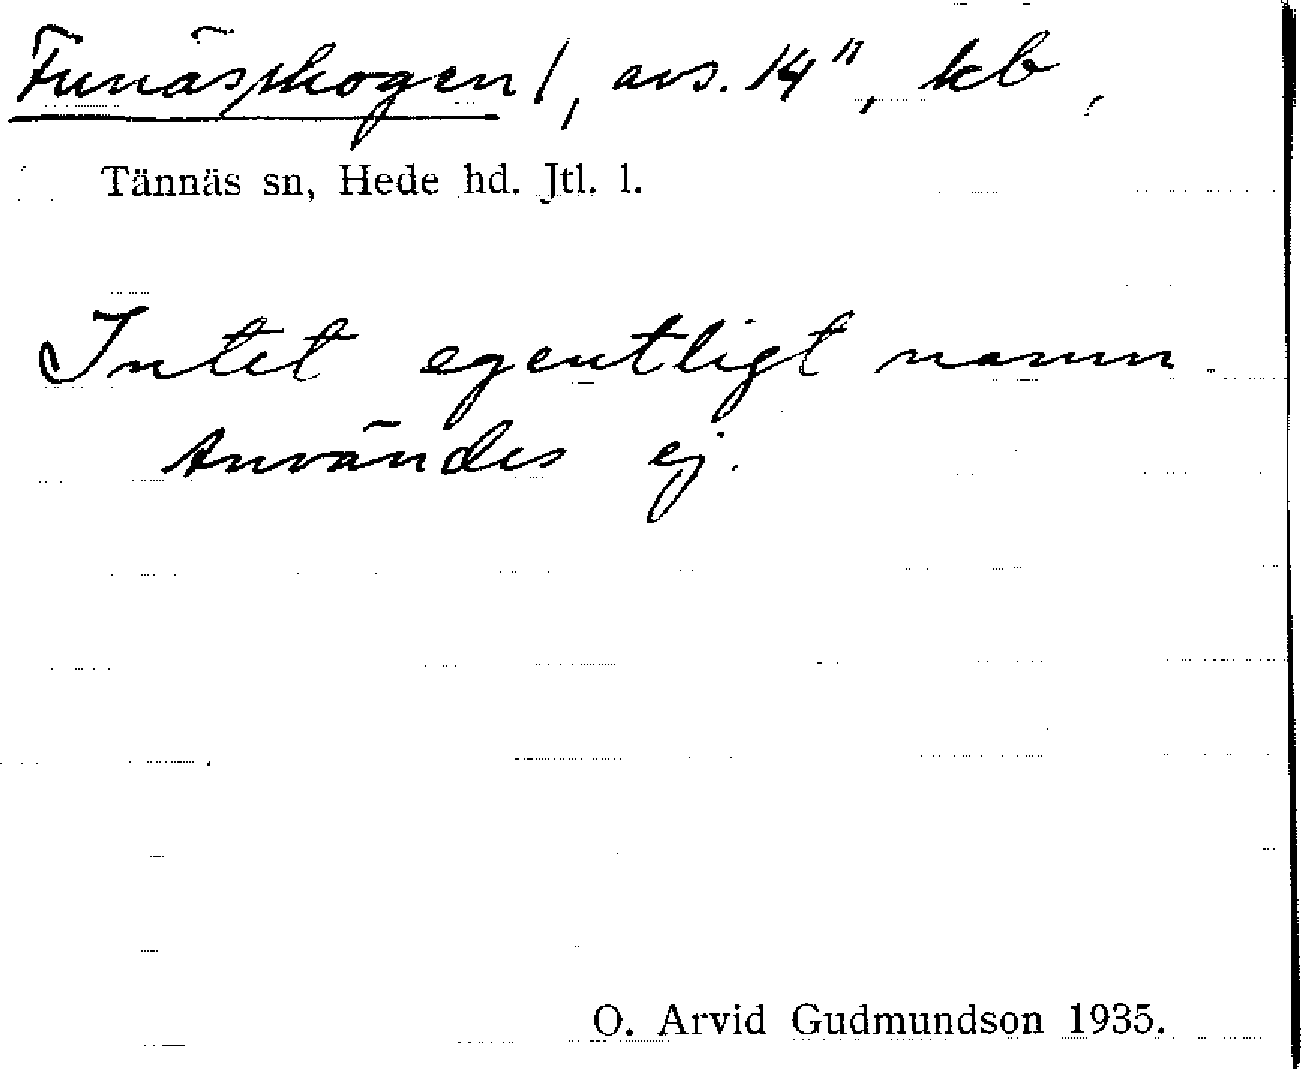 Funässkogen /, avs. 14", kb,
Tännäs sn, Hede hd. Jtl. l.
Intet egentligt namn.
Användes ej.
O. Arvid Gudmundson 1935.